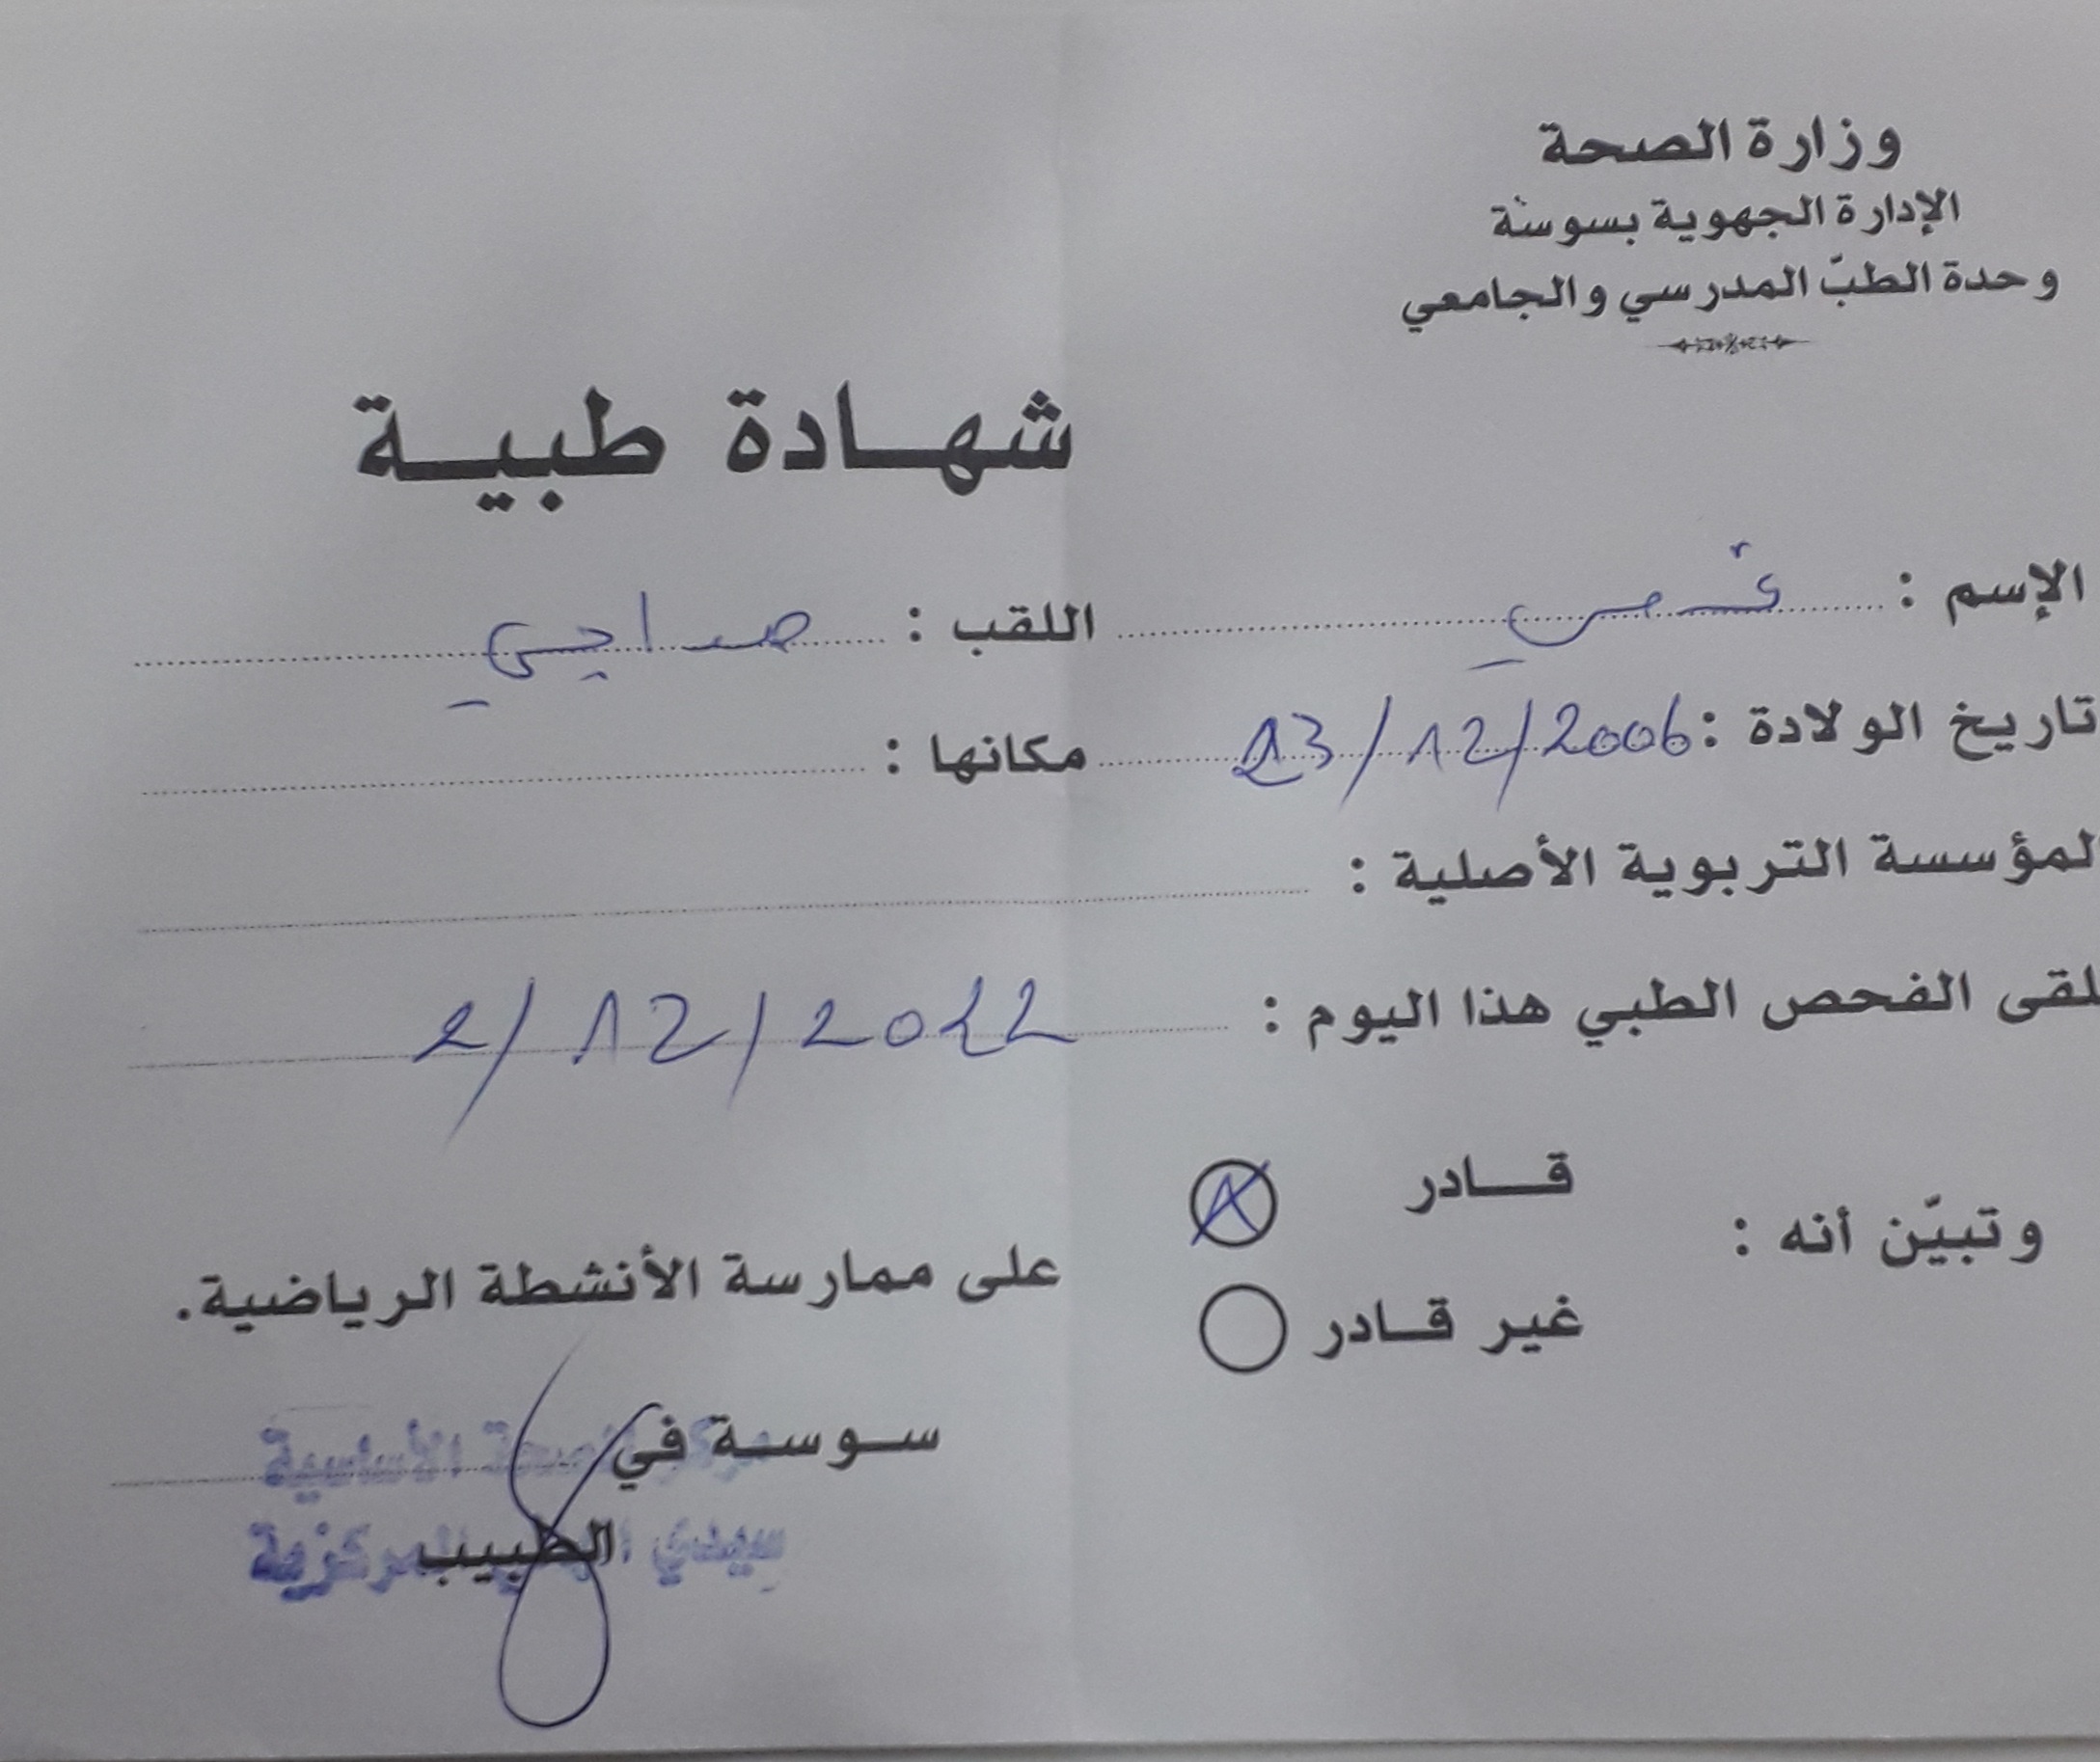 وزارة الصحة
الإدارة الجهوية بسوسة
وحدة الطبّ المدرسي والجامعي
شهـادة طبيـة
الإسم : اللقب :
تاريخ الولادة : 13/12/2006 مكانها :
لمؤسسة التربوية الأصلية :
لقى الفحص الطبي هذا اليوم : 2/12/2022
وتبيّن أنه : قــادر
غير قـادر
على ممارسة الأنشطة الرياضية.
سـوسـة في
الصحة الأساسية
الطبيب
سيدي المركزية